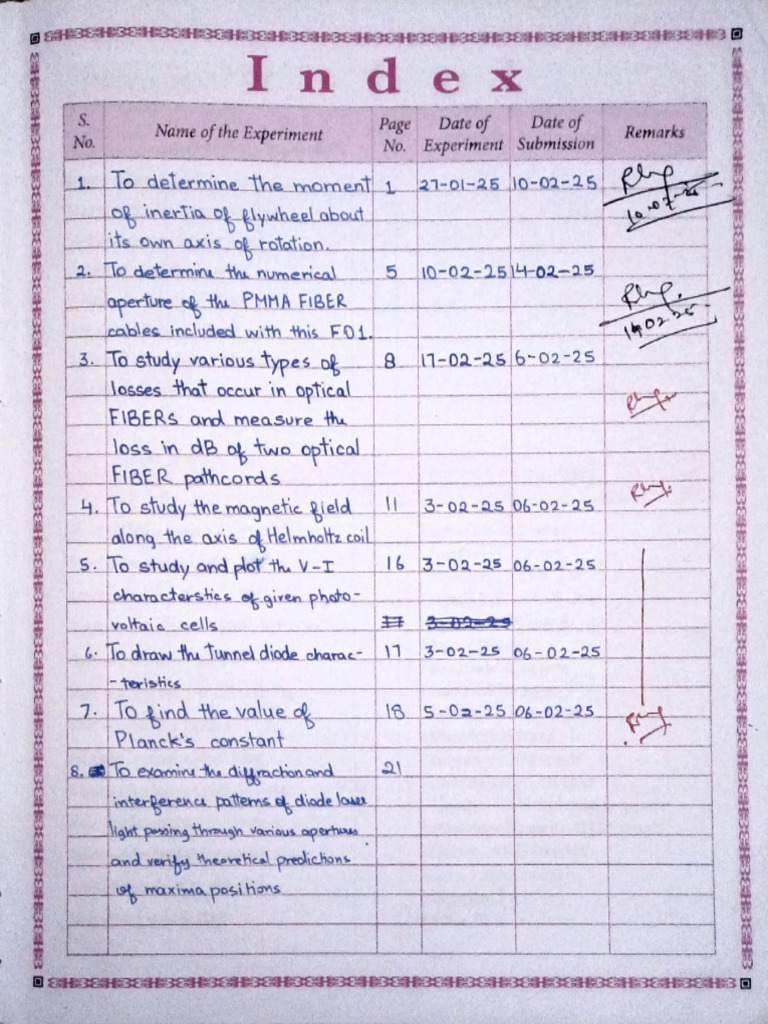 Index
S. No. Name of the Experiment Page No. Date of Experiment Date of Submission Remarks
1. To determine the moment 1 27-01-25 10-02-25
of inertia of flywheel about
its own axis of rotation.
2. To determine the numerical 5 10-02-25 14-02-25
aperture of the PMMA FIBER
cables included with this FO1.
14-02-25
3. To study various types of 8 17-02-25 6-02-25
losses that occur in optical
FIBERs and measure the
loss in dB of two optical
FIBER pathcords
4. To study the magnetic field 11 3-02-25 06-02-25
along the axis of Helmholtz coil
5. To study and plot the V-I 16 3-02-25 06-02-25
characterstics of given photo-
voltaic cells
6. To draw the tunnel diode charac- 17 3-02-25 06-02-25
-teristics
7. To find the value of 18 5-02-25 06-02-25
Planck's constant
8. To examine the diffraction and 21
interference patterns of diode laser
light passing through various apertures
and verify theoretical predictions
of maxima positions